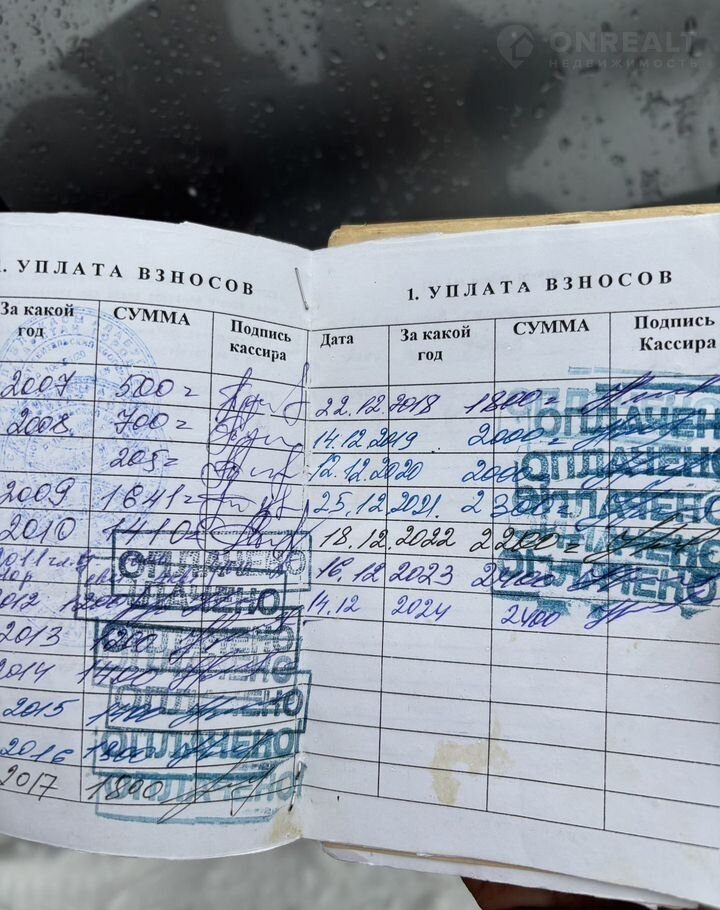 ONREALT
НЕДВИЖИМОСТЬ
1. УПЛАТА ВЗНОСОВ
За какой год СУММА Подпись кассира
2007 500 г
2008. 700 г
205 г
2009 1641 г
2010 1410
2011
ОПЛАЧЕНО
2012 1200
ОПЛАЧЕНО
2013 1200
ОПЛАЧЕНО
2014 1400
ОПЛАЧЕНО
2015 1400
ОПЛАЧЕНО
2016
ОПЛАЧЕНО
2017 1800
ОПЛАЧЕНО
1. УПЛАТА ВЗНОСОВ
Дата За какой год СУММА Подпись Кассира
22.12.2018 1800 г
ОПЛАЧЕНО
14.12.2019 2000 г
ОПЛАЧЕНО
12.12.2020 2000
ОПЛАЧЕНО
25.12.2021. 2300 г
ОПЛАЧЕНО
18.12.2022 2200 г
ОПЛАЧЕНО
16.12 2023 2400
14.12 2024 2400